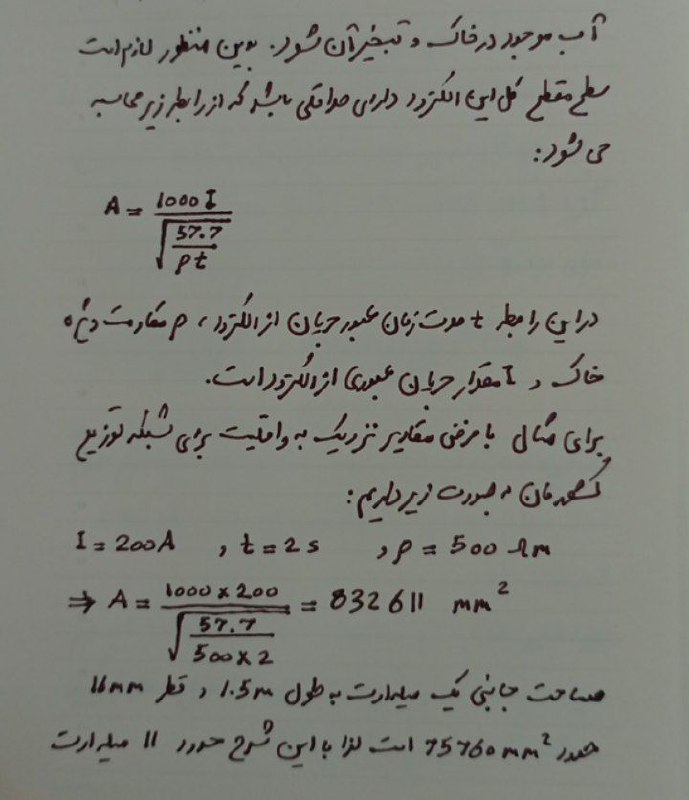 آب موجود در خاک و تبخیر آن شود. بدین منظور لازم است
سطح مقطع کل این الکترود دارای حداقلی باشد که از رابطه زیر محاسبه
می شود:
A = 1000 I / √(57.7 / ρt)
در این رابطه t مدت زمان عبور جریان از الکترود، ρ مقاومت ویژه
خاک و I مقدار جریان عبوری از الکترود است.
برای مثال با فرض مقادیر نزدیک به واقعیت برای شبکه توزیع
کشورمان به صورت زیر داریم:
I = 200A , t = 2 s , ρ = 500 Ωm
⇒ A = 1000 × 200 / √(57.7 / 500×2) = 832611 mm²
مساحت جانبی یک میله ارت به طول 1.5m و قطر 16mm
حدود 75760 mm² است لذا با این شرح حدود 11 میله ارت